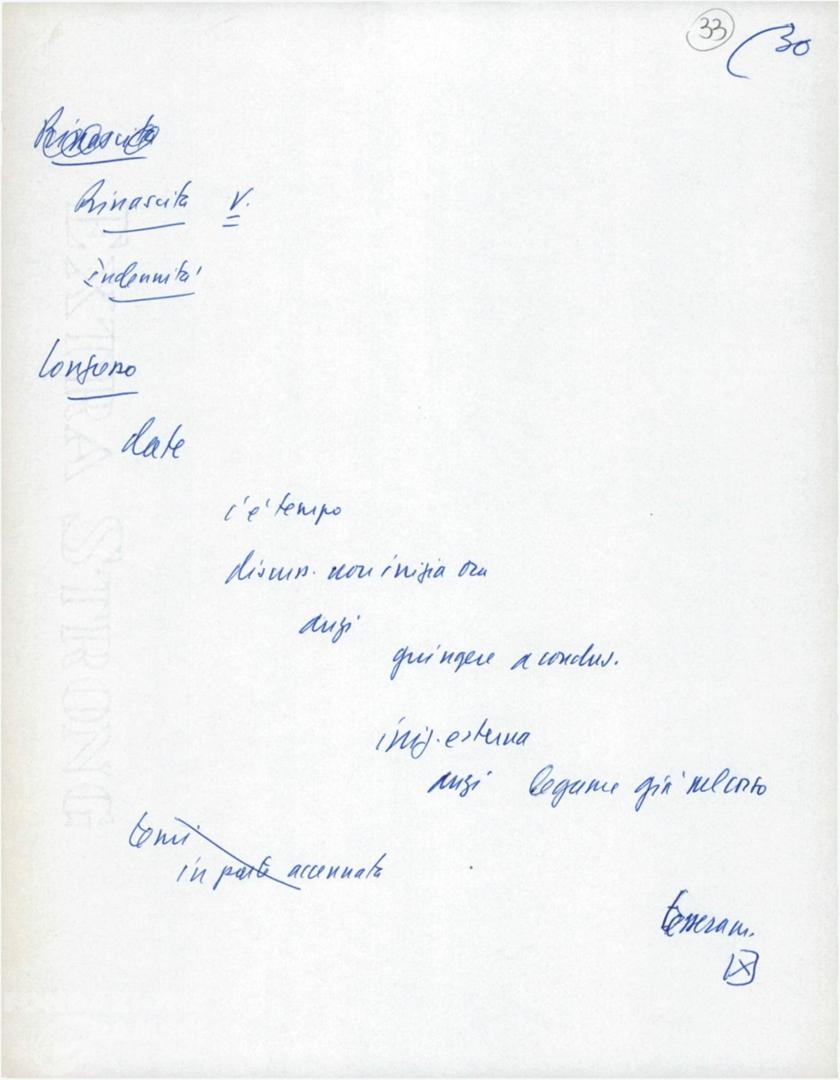 33 (30
Rinascita
Rinascita V.
indennità
Congresso
date
c'è tempo
discuss. non inizia ora
anzi
giungere a conclus.
iniz. esterna
anzi legame già nel corso
temi
in parte accennata
tesseram.
EXTRA STRONG